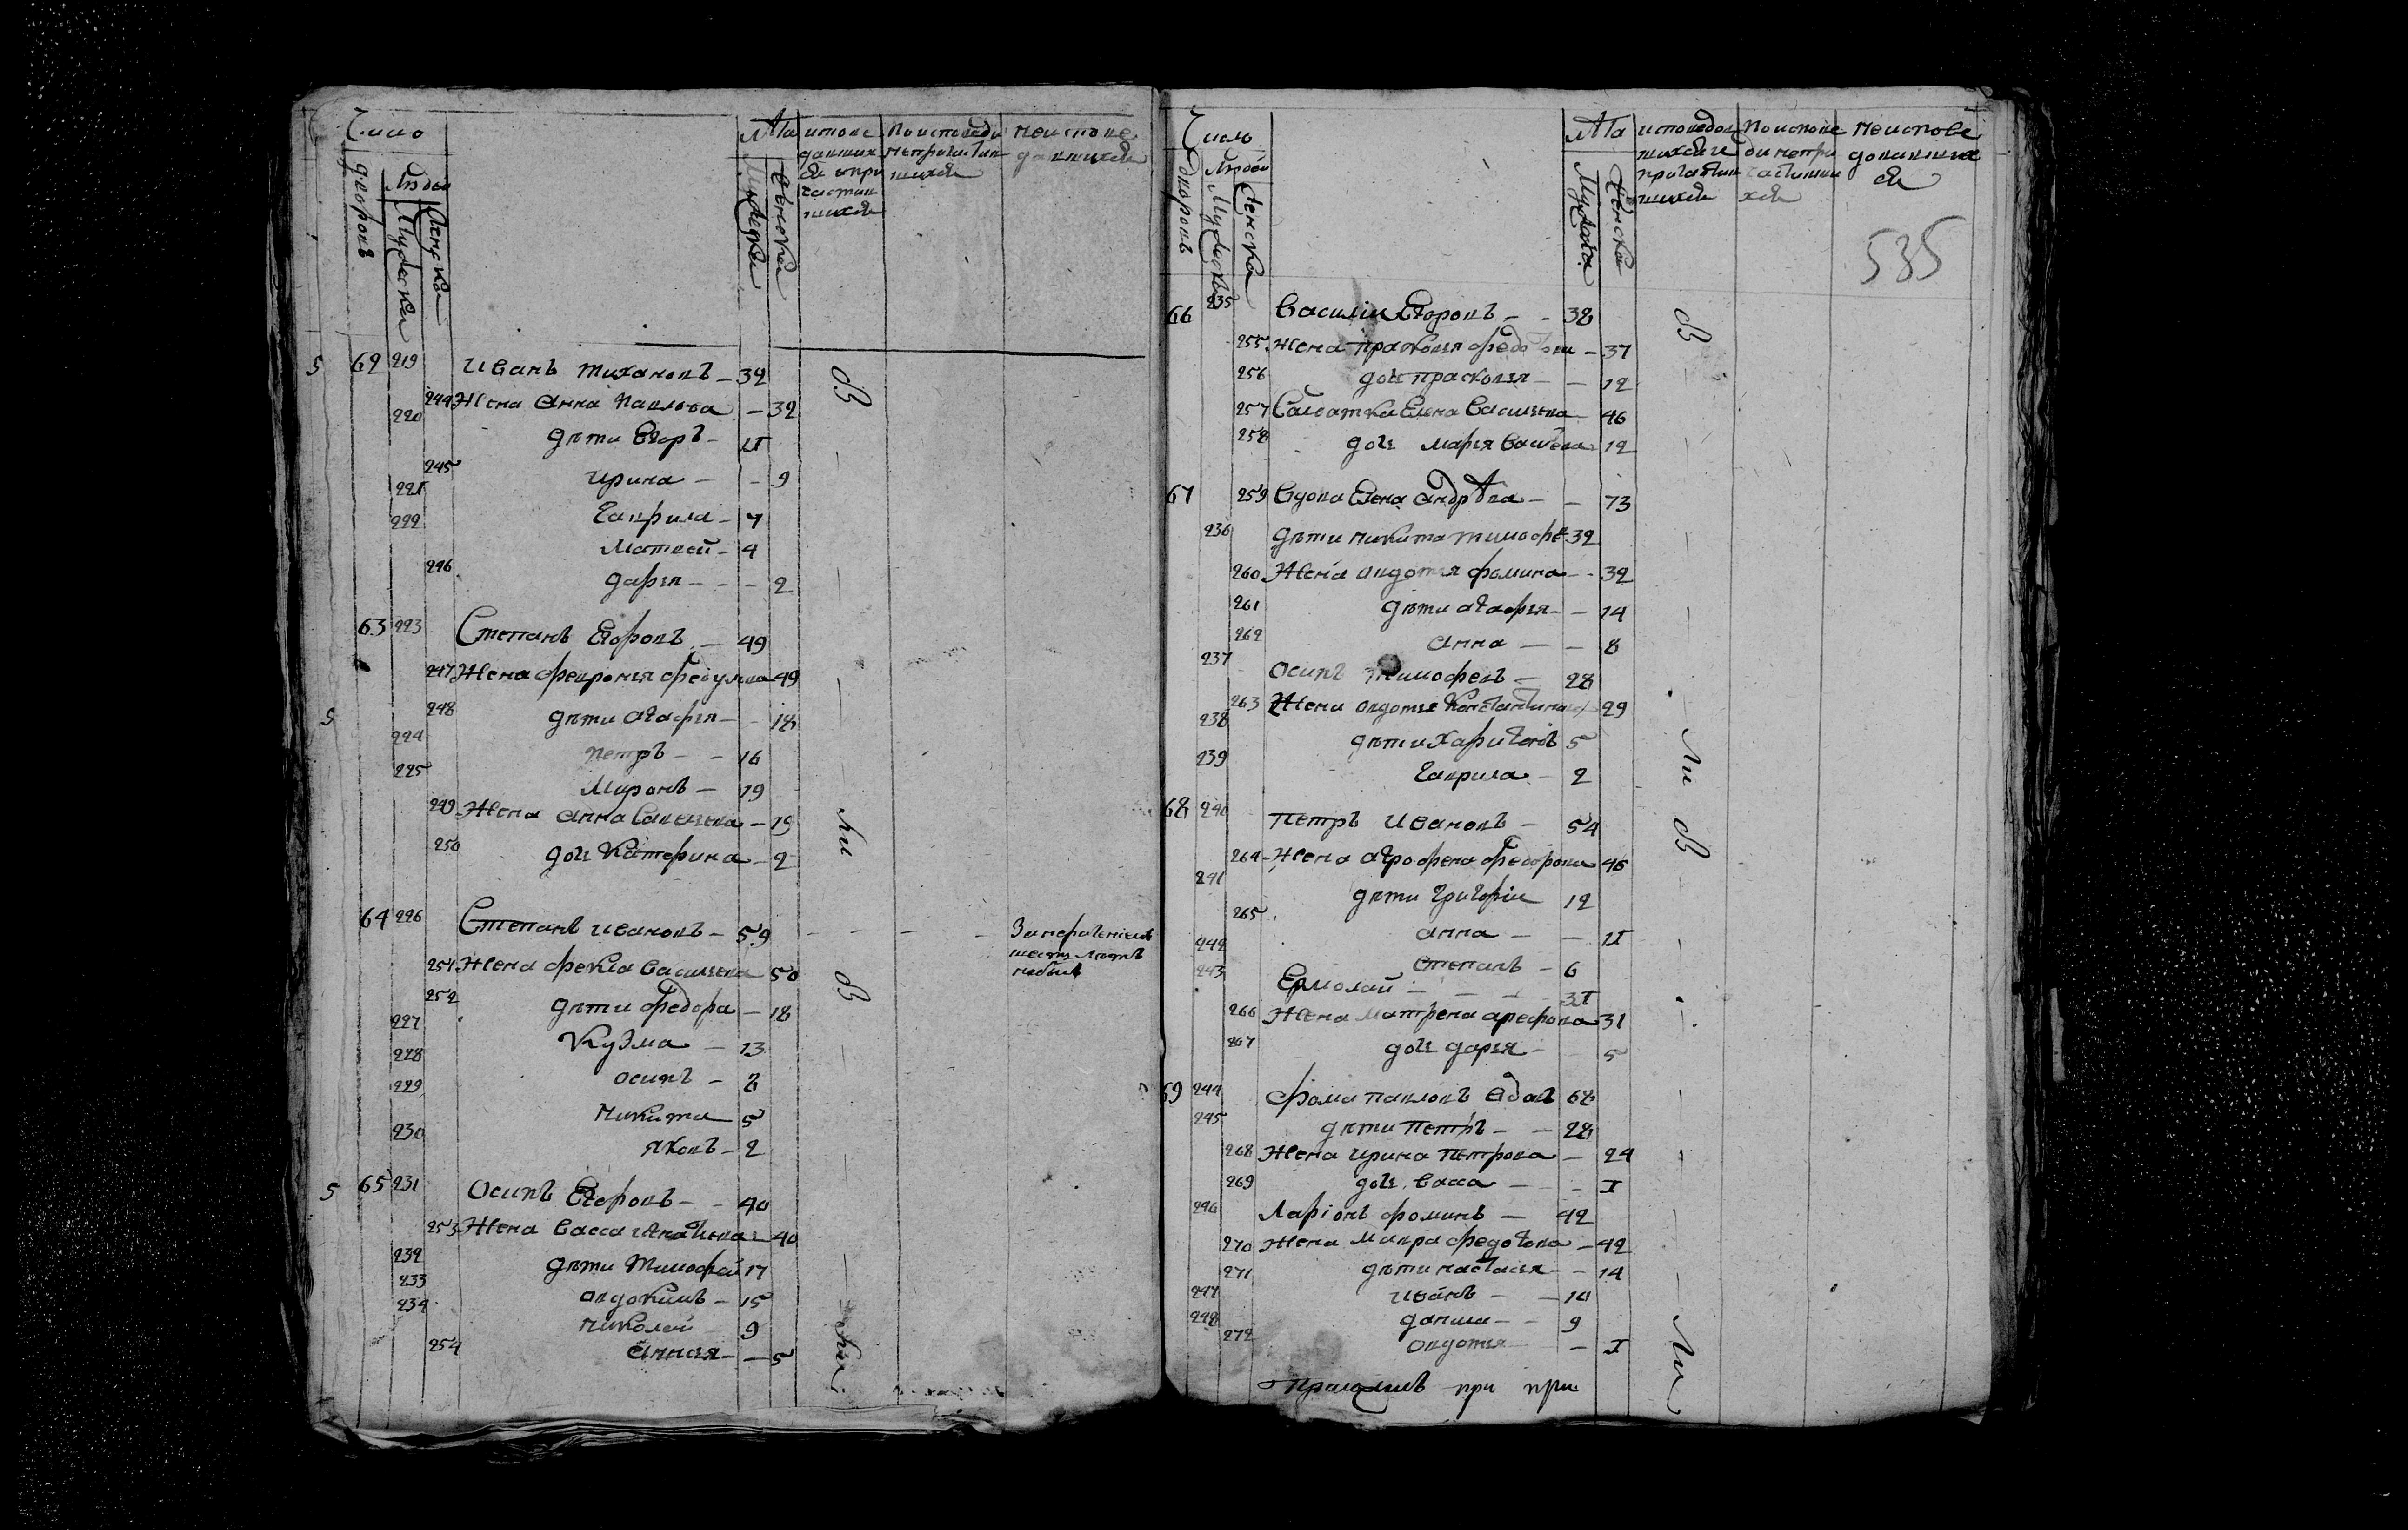 Число
дворовъ
Людей
Мужеска
Женска
Лѣта
Мужеска
Женска
испове
давших
ся и при
частив
шихся
По исповеди
непричастив
шихся
неиспове
давшихся
5 62 219 Иванъ Тихановъ — 32
244 Жена Анна Павлова — 32
220 дѣти Егоръ — 11
245 Ирина — 9
221 Гаврила — 7
222 Матвей — 4
246 дарья — 2
63 223 Степанъ Егоровъ — 49
247 Жена Февронья Федулова — 49
5 248 дѣти агафья — 18
224 петръ — 16
225 Миронъ — 19
249 Жена Анна Савельева — 19
250 дочь Катерина — 2
64 226 Степанъ Ивановъ — 59
251 Жена фекла Васильева — 50
252 дѣти федора — 18
227 Кузма — 13
228 осипъ — 8
229 Никита 5
230 яковъ — 2
5 65 231 Осипъ Егоровъ — 40
253 Жена Васса Игнатьева — 40
232 дѣти Тимофей 17
233 авдокимъ — 15
234 Николай 9
254 Анная — 5
бы
ли
бы
ли
Число
дворовъ
Людей
Мужеска
Женска
Лѣта
Мужеска
Женска
исповедов
шихся и
причастив
шихся
По испове
ди непри
частивши
хся
Неиспове
довавших
ся
535
66 235 Василій Егоровъ — 38
255 Жена прасковья — 37
256 дочь прасковья — 12
257 Салдатка Елена Васильева 46
258 дочь марья 12
67 259 Вдова Елена Андрѣева — 73
236 дѣти никита тимофѣ 32
260 Жена авдотья фомина — 32
261 дѣти агафья — 14
262 анна — 8
237 Осипъ Тимофеевъ — 28
263 Жена авдотья Константинова 29
238 дѣти Харитонъ 5
239 Гаврила — 2
68 240 Петръ Ивановъ — 54
264 Жена аграфена федорова 46
241 дѣти Григорій 12
265 анна — 11
242 Степанъ — 6
243 Ермолай — 31
266 Жена Матрена арефьева 31
267 дочь дарья — 5
69 244 Фома павловъ вдовъ 68
245 дѣти Петръ — 28
268 Жена Ирина Петрова — 24
269 дочь Васса — 1
246 Ларіонъ фоминъ — 42
270 Жена Мавра федотова — 42
271 дѣти настасья — 14
247 Иванъ — 10
248 данила — 9
272 авдотья — 1
бы
ли
бы
ли
при при